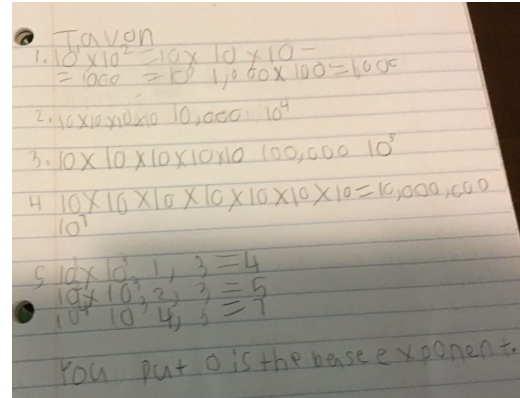 Tavon
1. 10¹ x 10² = 10 x 10 x 10 =
= 1000 = 10³ 1,000 x 100 = 1,000
2. 10x10x10x10 10,000 10⁴
3. 10 x 10 x 10 x 10 x 10 100,000 10⁵
4 10 x 10 x 10 x 10 x 10 x 10 x 10 = 10,000,000
10⁷
5 10¹ x 10³, 1, 3 = 4
10² x 10³, 2, 3 = 5
10⁴ 10³ 4, 3 = 7
You put 0 is the base exponent.